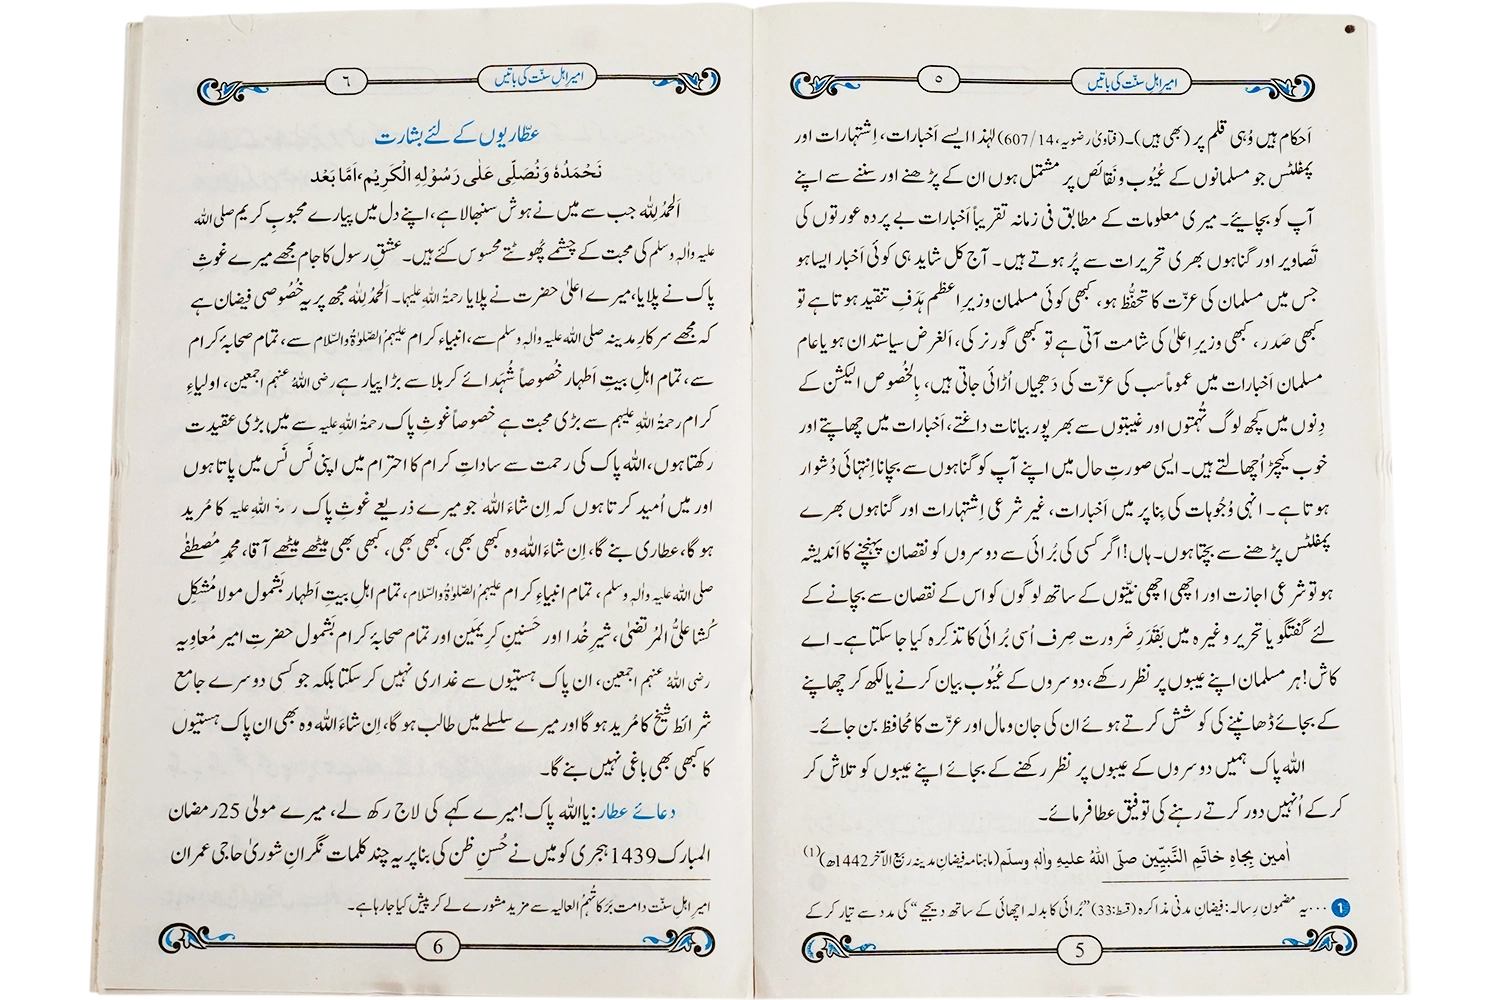 امیرِ اہلِ سنّت کی باتیں
۵
اَحکام ہیں وُہی قلم پر (بھی ہیں)۔(فتاویٰ رضویہ،14/607) لہٰذا ایسے اَخبارات، اِشتہارات اور
پمفلٹس جو مسلمانوں کے عُیُوب و نَقائص پر مشتمل ہوں ان کے پڑھنے اور سننے سے اپنے
آپ کو بچائیے۔ میری معلومات کے مطابق فی زمانہ تقریباً اَخبارات بے پردہ عورتوں کی
تَصاویر اور گناہوں بھری تحریرات سے پُر ہوتے ہیں۔ آج کل شاید ہی کوئی اَخبار ایسا ہو
جس میں مسلمان کی عزّت کا تَحفُّظ ہو، کبھی کوئی مسلمان وزیرِ اعظم ہَدَفِ تنقید ہوتا ہے تو
کبھی صدر، کبھی وزیرِ اعلیٰ کی شامت آتی ہے تو کبھی گورنر کی، اَلغرض سیاستدان ہو یا عام
مسلمان اَخبارات میں عموماً سب کی عزّت کی دَھجیاں اُڑائی جاتی ہیں، بِالخُصوص الیکشن کے
دِنوں میں کچھ لوگ تُہمتوں اور غیبتوں سے بھرپور بیانات داغتے، اَخبارات میں چھاپتے اور
خوب کیچڑ اُچھالتے ہیں۔ ایسی صورتِ حال میں اپنے آپ کو گناہوں سے بچانا اِنتہائی دُشوار
ہوتا ہے۔ انہی وُجُوہات کی بِنا پر میں اَخبارات، غیر شرعی اِشتہارات اور گناہوں بھرے
پمفلٹس پڑھنے سے بچتا ہوں۔ ہاں! اگر کسی کی بُرائی سے دوسروں کو نقصان پہنچنے کا اَندیشہ
ہو تو شرعی اجازت اور اچھی اچھی نیّتوں کے ساتھ لوگوں کو اس کے نقصان سے بچانے کے
لئے گفتگو یا تحریر وغیرہ میں بَقَدَرِ ضَرورت صِرف اُسی بُرائی کا تذکِرہ کیا جا سکتا ہے۔ اے
کاش! ہر مسلمان اپنے عیبوں پر نظر رکھے، دوسروں کے عُیُوب بیان کرنے یا لکھ کر چھاپنے
کے بجائے ڈھانپنے کی کوشش کرتے ہوئے ان کی جان و مال اور عزّت کا مُحافظ بن جائے۔
اللہ پاک ہمیں دوسروں کے عیبوں پر نظر رکھنے کے بجائے اپنے عیبوں کو تلاش کر
کر کے اُنہیں دور کرتے رہنے کی توفیق عطا فرمائے۔
اٰمین بِجاہِ خاتَمِ النَّبیّین صلّی اللہُ علیہِ واٰلہٖ وسلّم(ماہنامہ فیضانِ مدینہ ربیع الآخر1442ھ)(1)
1 ...یہ مضمون رِسالہ: فیضانِ مدنی مذاکرہ (قسط:33) ”بُرائی کا بدلہ اچھائی کے ساتھ دیجیے“ کی مدد سے تیار کر کے
5
امیرِ اہلِ سنّت کی باتیں
٦
عطّاریوں کے لئے بشارت
نَحْمَدُهٗ وَنُصَلِّی عَلٰی رَسُوْلِهِ الْکَرِیْم، اَمَّا بَعْد
اَلحمدُ لِلّٰہ جب سے میں نے ہوش سنبھالا ہے، اپنے دل میں پیارے محبوبِ کریم صلی اللہ
علیہ واٰلہٖ وسلم کی محبت کے چشمے پُھوٹتے محسوس کئے ہیں۔ عشقِ رسول کا جام مجھے میرے غوثِ
پاک نے پلایا، میرے اعلیٰ حضرت نے پلایا رحمۃُ اللہِ علیہما۔ اَلحمدُ لِلّٰہ مجھ پر یہ خُصُوصی فیضان ہے
کہ مجھے سرکارِ مدینہ صلی اللہ علیہ واٰلہٖ وسلم سے، انبیاءِ کرام علیہمُ الصّلوٰۃُ والسّلام سے، تمام صحابۂ کرام
سے، تمام اہلِ بیتِ اَطہار خصُوصاً شُہَدائے کربلا سے بڑا پیار ہے رضی اللہُ عنہم اجمعین، اولیاءِ
کرام رحمۃُ اللہِ علیہم سے بڑی محبت ہے خصُوصاً غوثِ پاک رحمۃُ اللہِ علیہ سے میں بڑی عقیدت
رکھتا ہوں، اللہ پاک کی رحمت سے ساداتِ کرام کا احترام میں اپنی نَس نَس میں پاتا ہوں
اور میں اُمید کرتا ہوں کہ اِن شاءَ اللہ جو میرے ذریعے غوثِ پاک رحمۃُ اللہِ علیہ کا مُرید
ہوگا، عطاری بنے گا، اِن شاءَ اللہ وہ کبھی بھی، کبھی بھی، کبھی بھی میٹھے میٹھے آقا، محمدِ مُصطفٰے
صلی اللہ علیہ واٰلہٖ وسلم، تمام انبیاءِ کرام علیہمُ الصّلوٰۃُ والسّلام، تمام اہلِ بیتِ اَطہار بَشمول مولا مُشکِل
کُشا علیُّ المُرتضیٰ، شیرِ خُدا اور حَسنَینِ کریمَین اور تمام صحابۂ کرام بَشمول حضرتِ امیر مُعاویہ
رضی اللہُ عنہم اجمعین، ان پاک ہستیوں سے غداری نہیں کر سکتا بلکہ جو کسی دوسرے جامع
شرائط شیخ کا مُرید ہوگا اور میرے سلسلے میں طالب ہوگا، اِن شاءَ اللہ وہ بھی ان پاک ہستیوں
کا کبھی بھی باغی نہیں بنے گا۔
دعائے عطار: یا اللہ پاک! میرے کہے کی لاج رکھ لے، میرے مولیٰ 25رمضان
المبارک 1439ہجری کو میں نے حُسنِ ظن کی بنا پر یہ چند کلمات نگرانِ شوریٰ حاجی عمران
امیرِ اہلِ سنّت دامت بَرَکاتُہُمُ العالیہ سے مزید مشورے لے کر پیش کیا جا رہا ہے۔
6